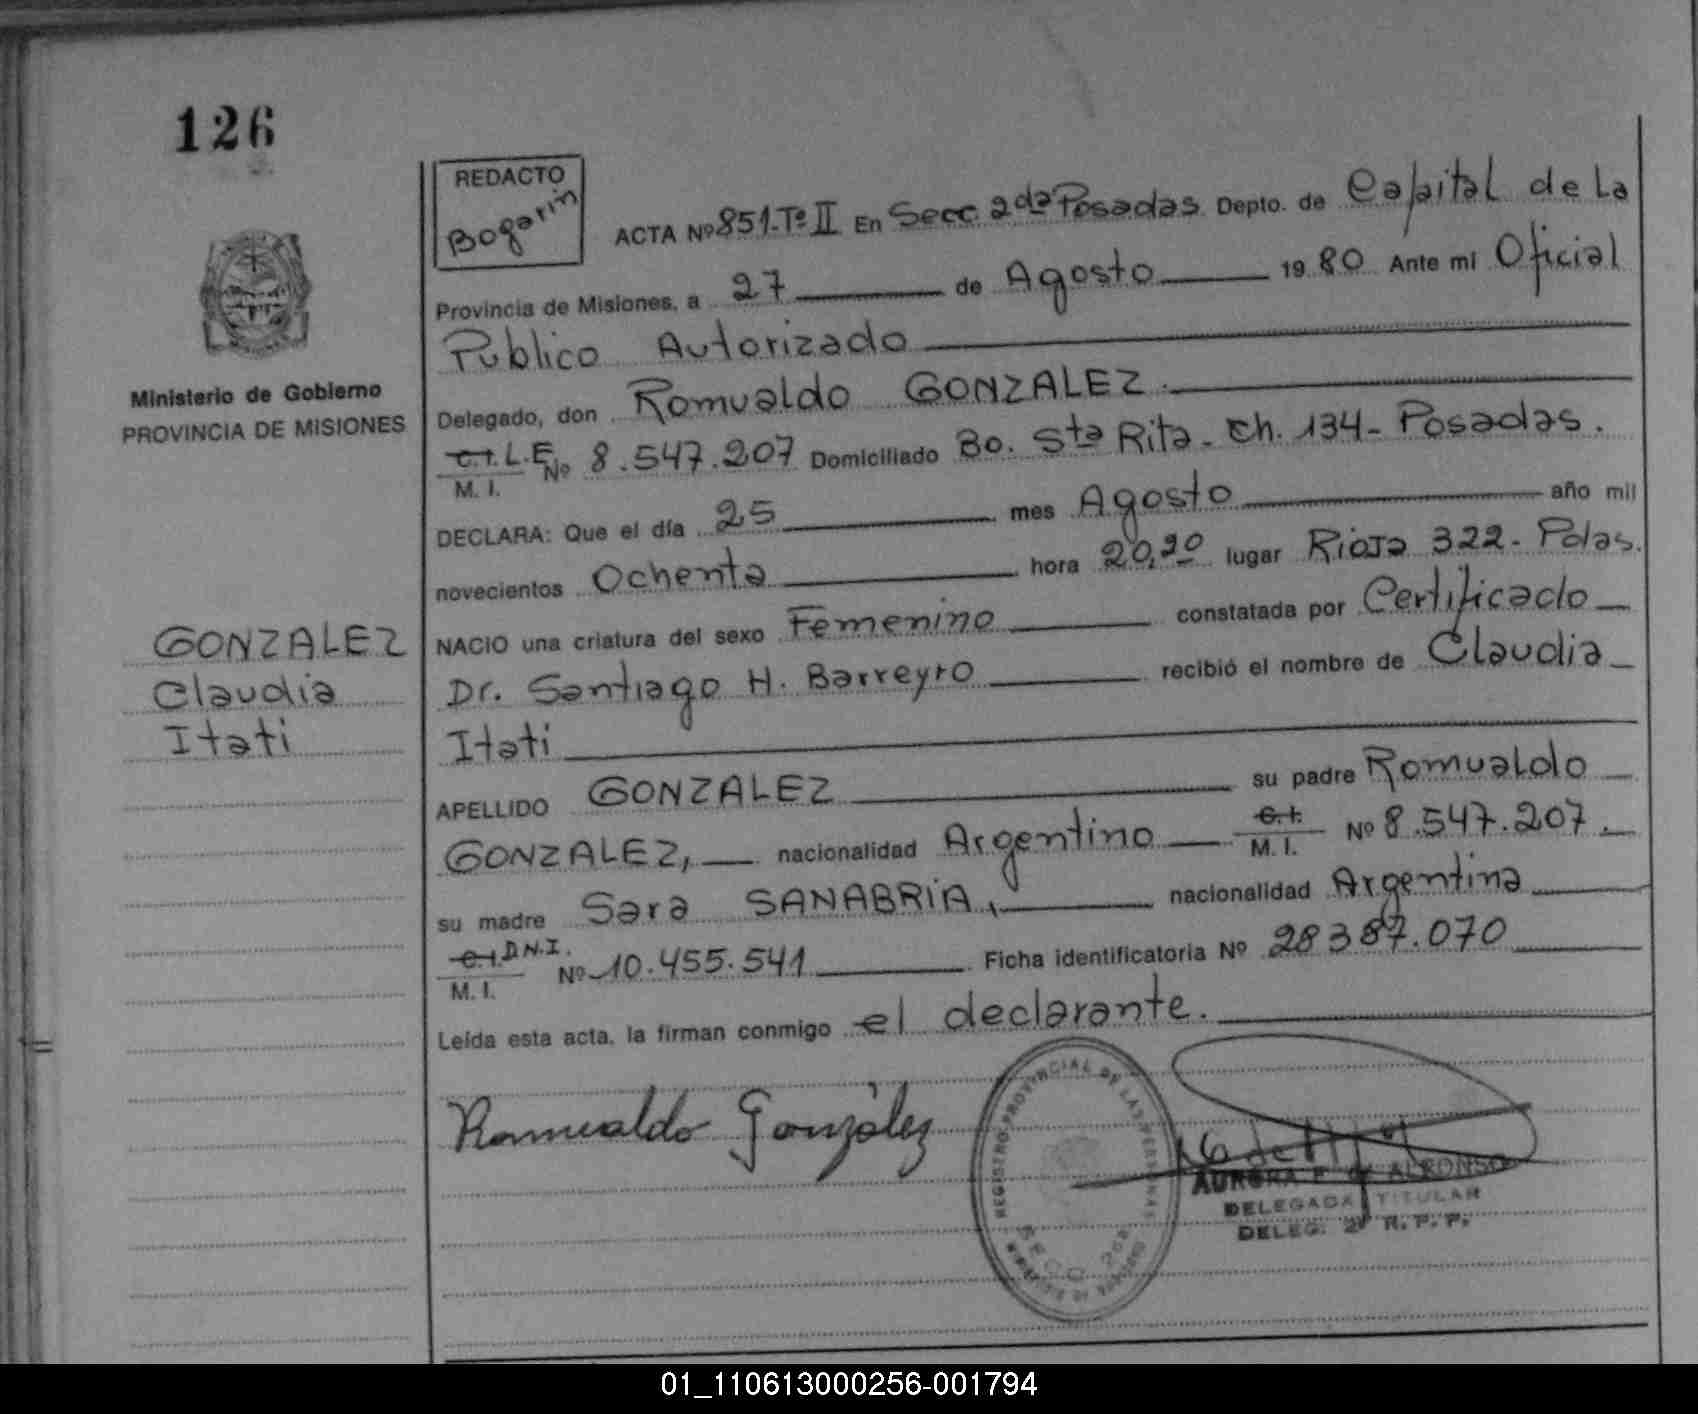 126
REDACTO
Bogarin
ACTA Nº 851-Tº II En Secc. 2da Posadas Depto. de Capital de La
Provincia de Misiones, a 27 de Agosto 19 80 Ante mi Oficial
Publico Autorizado
Ministerio de Gobierno
PROVINCIA DE MISIONES
Delegado, don Romualdo GONZALEZ.
C.I. L.E. Nº 8.547.207 Domiciliado Bo. Sta Rita - Ch. 134 - Posadas.
M. I.
DECLARA: Que el día 25 mes Agosto año mil
novecientos Ochenta hora 20,20 lugar Rioja 322 - Pdas.
NACIO una criatura del sexo Femenino constatada por Certificado
Dr. Santiago H. Barreyro recibió el nombre de Claudia
Itati
GONZALEZ
Claudia
Itati
APELLIDO GONZALEZ su padre Romualdo
GONZALEZ, nacionalidad Argentino C.I. Nº 8.547.207.
M. I.
su madre Sara SANABRIA, nacionalidad Argentina
C.I. D.N.I. Nº 10.455.541 Ficha identificatoria Nº 28387.070
M. I.
Leída esta acta, la firman conmigo el declarante.
Romualdo González
REGISTRO PROVINCIAL DE LAS PERSONAS
SECC. 2da
AURORA F. de ALFONSO
DELEGADA TITULAR
DELEG. 2ª R. P. P.
01_110613000256-001794